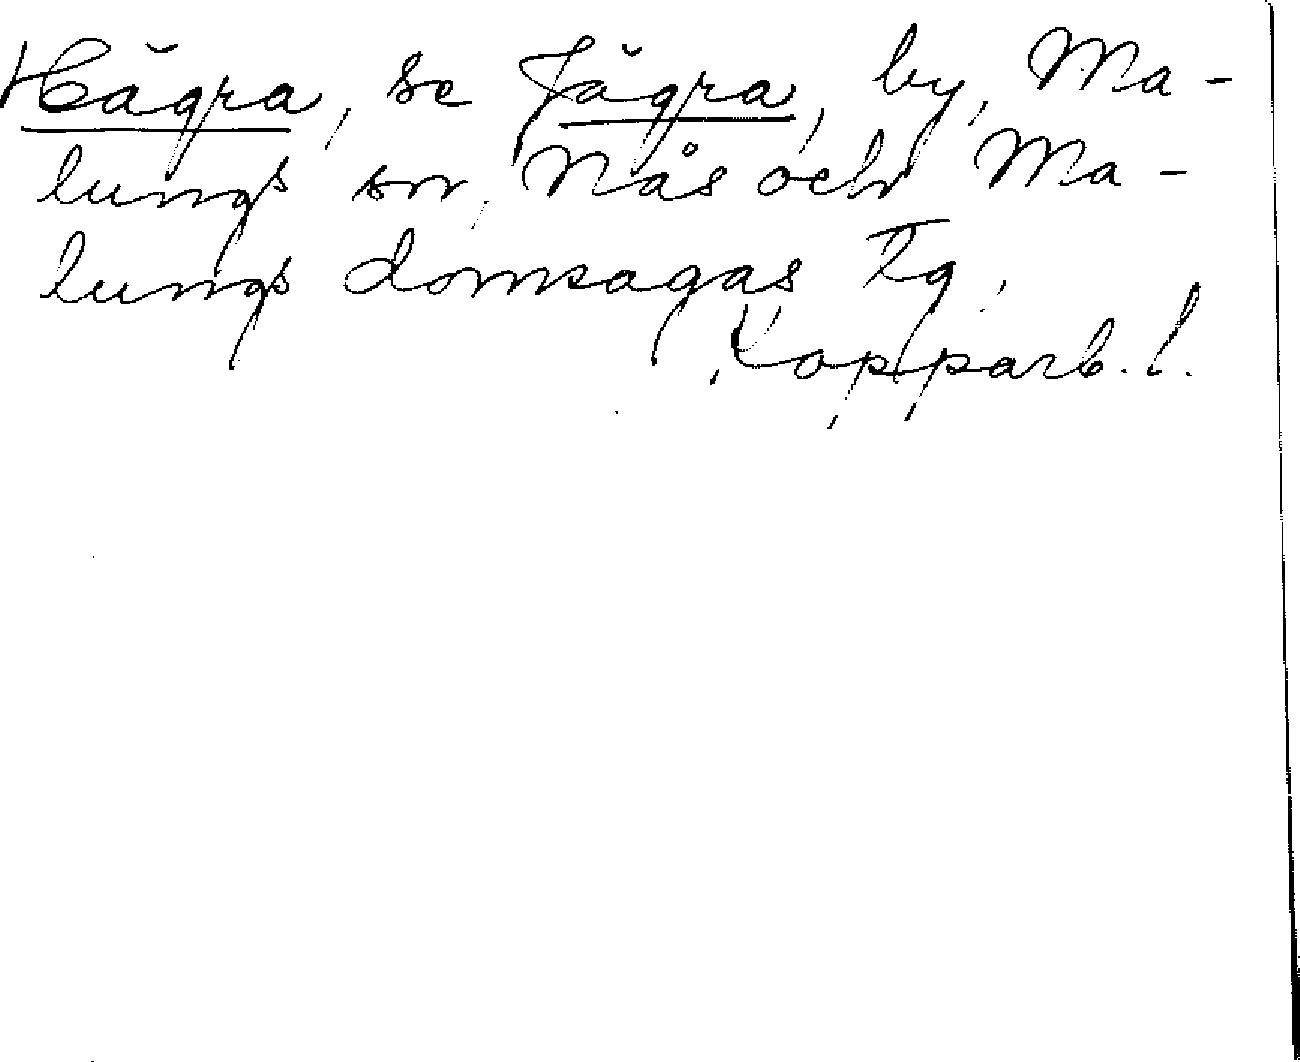 Hägra, se Jägra, by, Ma-
lungs sn, Nås och Ma-
lungs domsagas tg,
Kopparb. l.